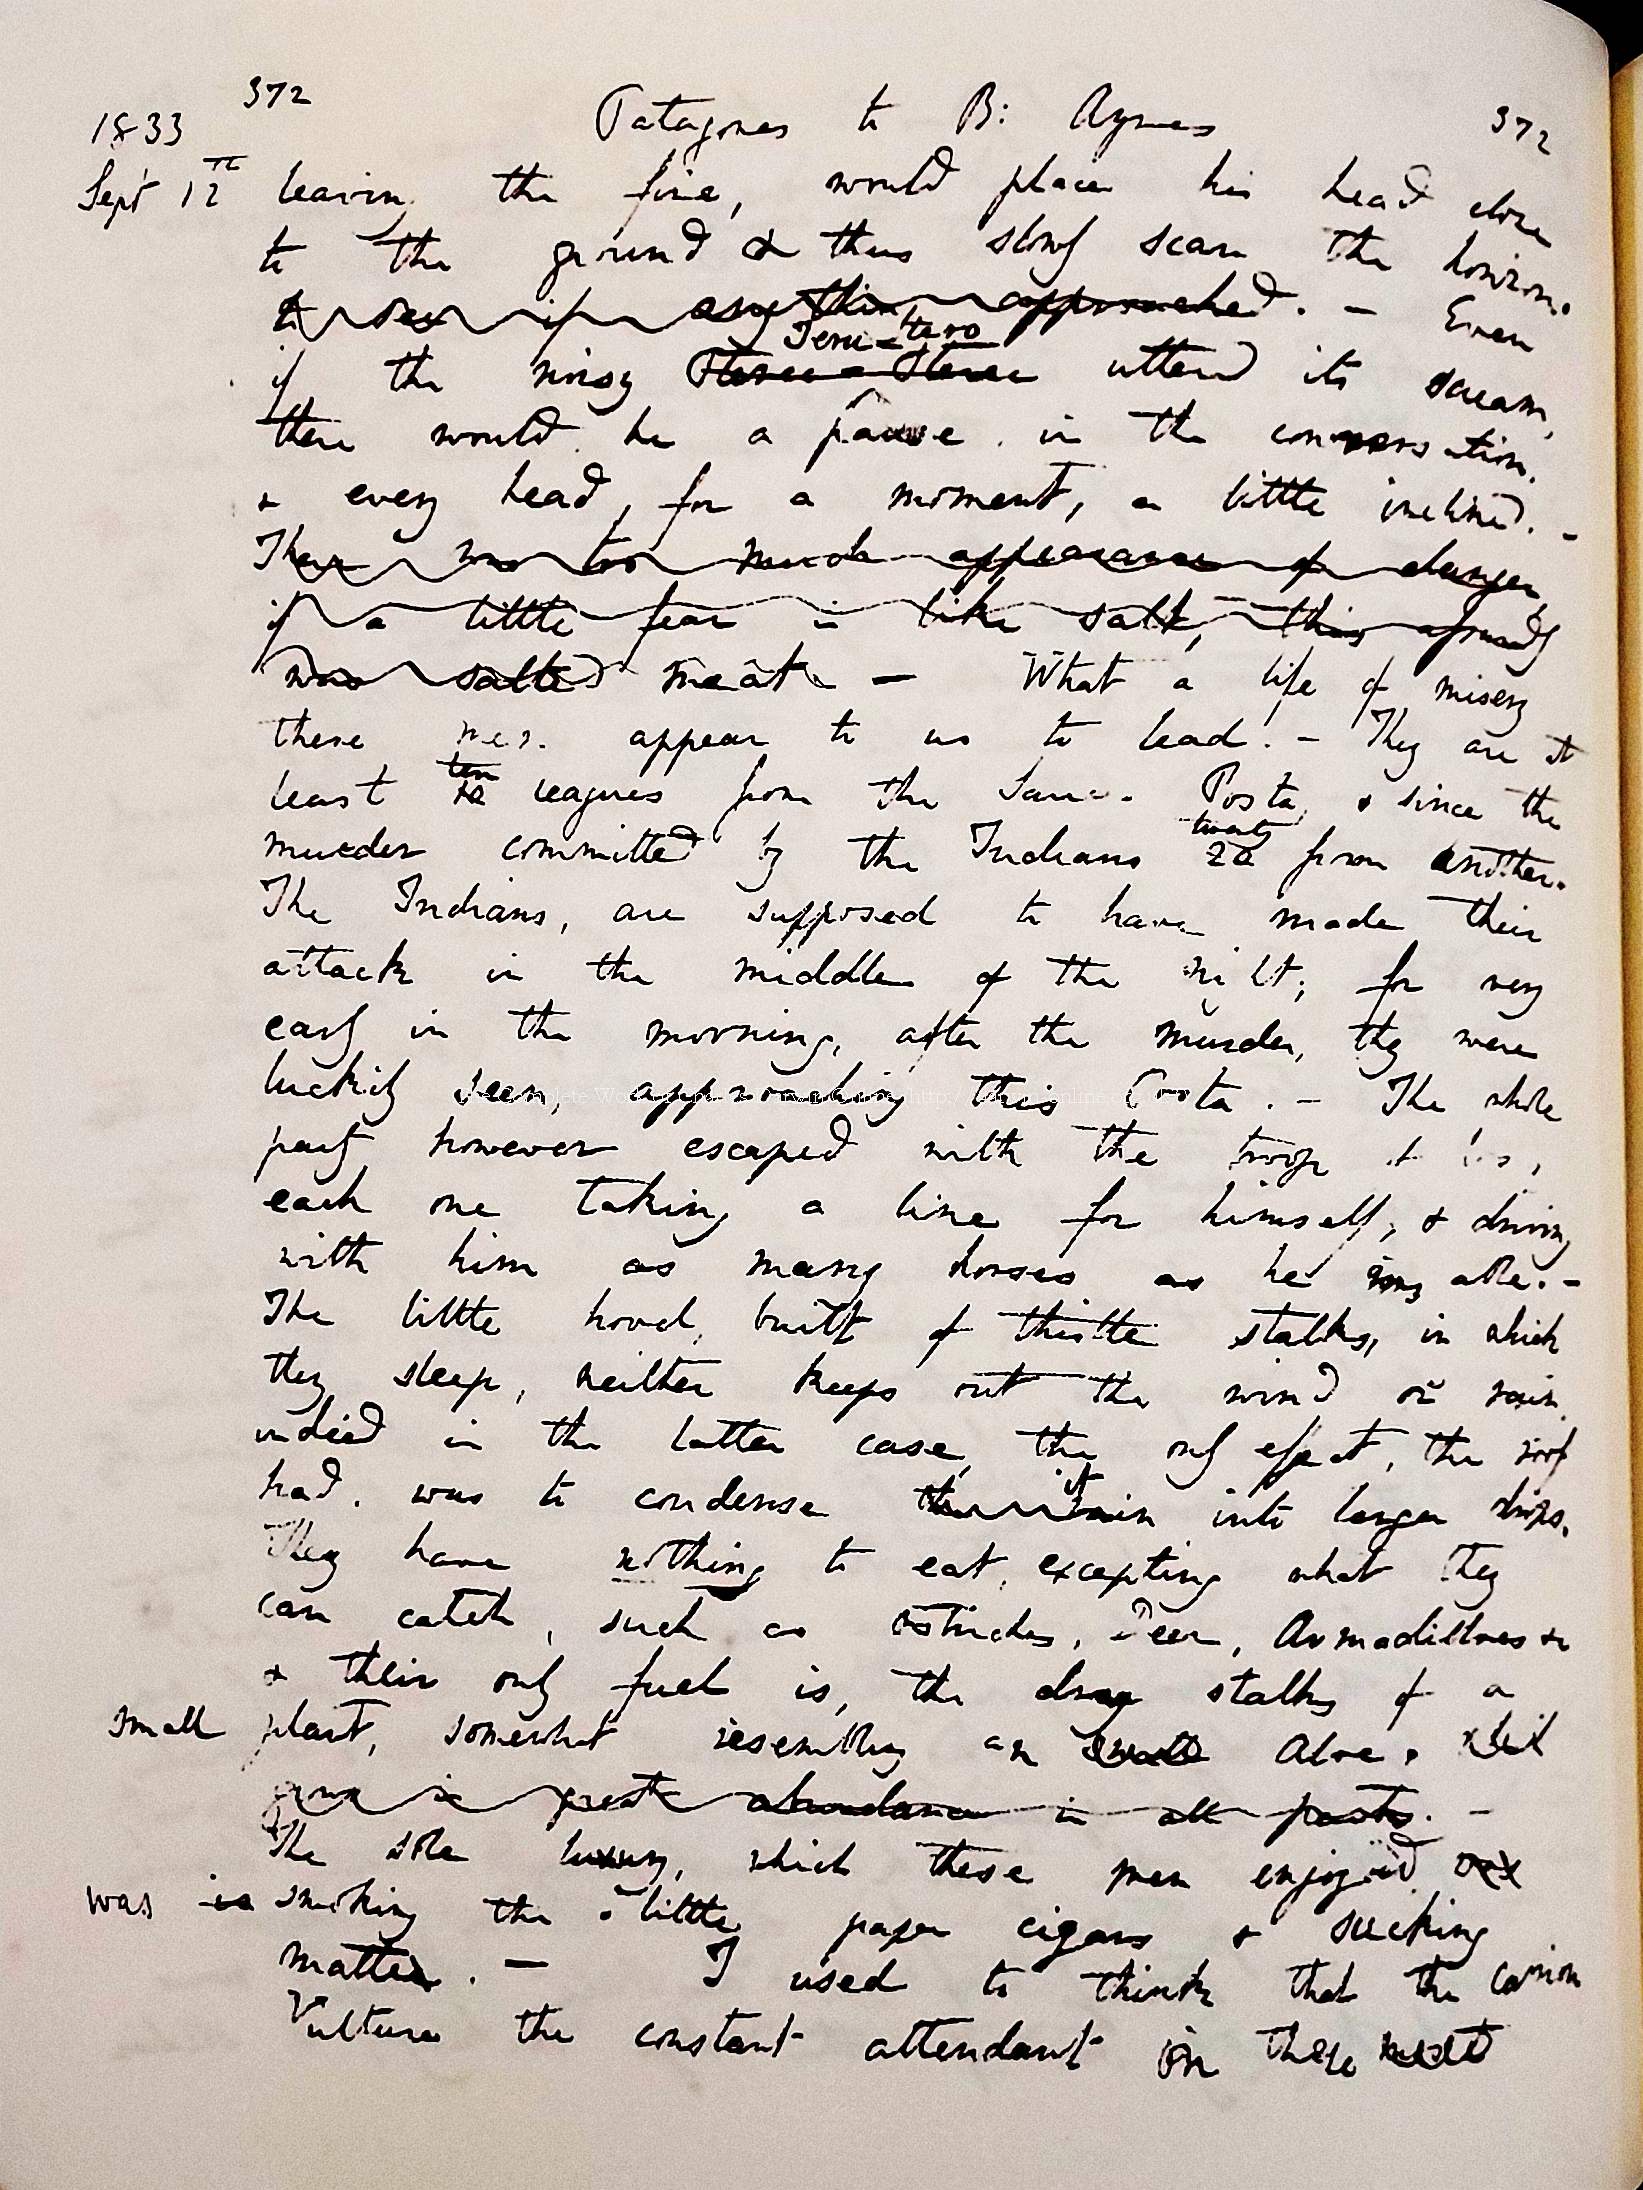 372
Patagones to B: Ayres
372
1833
Sept 12th leaving the fire, would place his head close
to the ground & thus slowly scan the horizon.
to see if any thing approached. — Even
Teru-tero
if the noisy uttered its scream,
there would be a pause in the conversation,
& every head, for a moment, a little inclined. —
There was too much appearance of danger
if a little fear is like salt, this already
was salted meat — What a life of misery
these men appear to us to lead! — They are at
ten
least 10 leagues from the Sauce Posta, & since the
twenty
murder committed by the Indians 20 from another.
The Indians, are supposed to have made their
attack in the middle of the night; for very
early in the morning, after the murder, they were
luckily seen, approaching this Posta. — The whole
party however escaped with the troop
each one taking a line for himself, & driving
with him as many horses as he was able. —
The little hovel, built of thistle stalks, in which
they sleep, neither keeps out the wind or rain
indeed in the latter case, the only effect, the roof
it
had, was to condense the rain into larger drops.
They have nothing to eat, excepting what they
can catch, such as ostriches, Deer, Armadilloes &
& their only fuel is, the dry stalks of a
small plant, somewhat resembling an Aloe.
grows in great abundance in all parts. —
The sole luxury, which these men enjoyed
was is smoking the little paper cigars & sucking
mattee. — I used to think that the carrion
Vultures the constant attendant on these